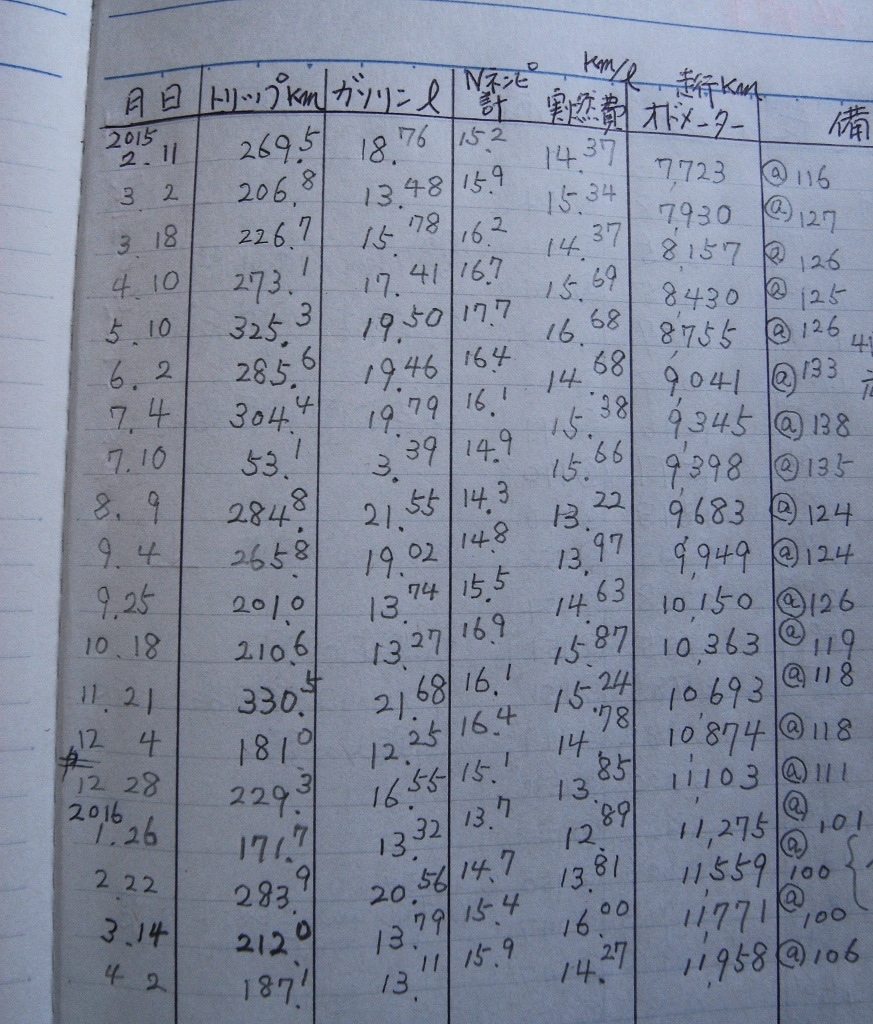 月日 トリップkm ガソリンℓ Nネンピ計 km/ℓ 実燃費 走行Km オドメーター 備
2015
2.11 269.5 18.76 15.2 14.37 7,723 @116
3.2 206.8 13.48 15.9 15.34 7,930 @127
3.18 226.7 15.78 16.2 14.37 8,157 @126
4.10 273.1 17.41 16.7 15.69 8,430 @125
5.10 325.3 19.50 17.7 16.68 8,755 @126
6.2 285.6 19.46 16.4 14.68 9,041 @133
7.4 304.4 19.79 16.1 15.38 9,345 @138
7.10 53.1 3.39 14.9 15.66 9,398 @135
8.9 284.8 21.55 14.3 13.22 9,683 @124
9.4 265.8 19.02 14.8 13.97 9,949 @124
9.25 201.0 13.74 15.5 14.63 10,150 @126
10.18 210.6 13.27 16.9 15.87 10,363 @119
11.21 330.5 21.68 16.1 15.24 10,693 @118
12 4 181.0 12.25 16.4 14.78 10,874 @118
12 28 229.3 16.55 15.1 13.85 11,103 @111
2016
1.26 171.7 13.32 13.7 12.89 11,275 @101
2.22 283.9 20.56 14.7 13.81 11,559 @100
3.14 212.0 13.79 15.4 16.00 11,771 @100
4 2 187.1 13.11 15.9 14.27 11,958 @106